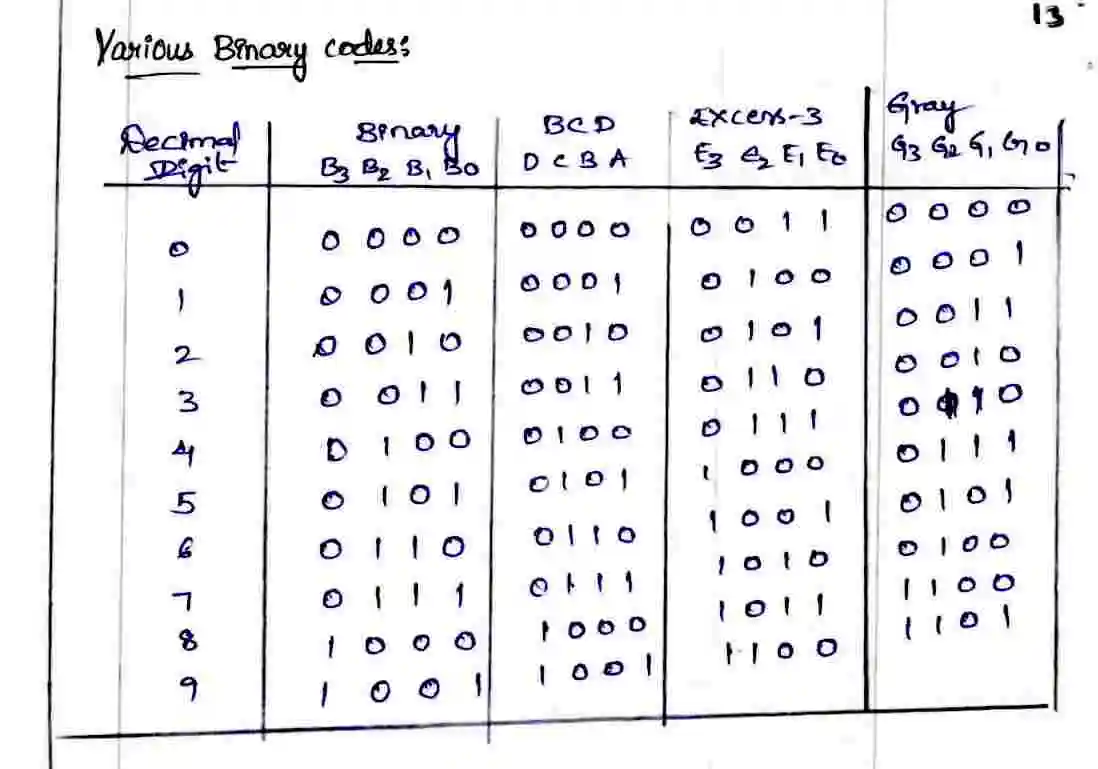 13
Various Binary codes:
Decimal Digit | Binary B3 B2 B1 B0 | BCD D C B A | Excess-3 E3 E2 E1 E0 | Gray G3 G2 G1 G0
0 | 0 0 0 0 | 0 0 0 0 | 0 0 1 1 | 0 0 0 0
1 | 0 0 0 1 | 0 0 0 1 | 0 1 0 0 | 0 0 0 1
2 | 0 0 1 0 | 0 0 1 0 | 0 1 0 1 | 0 0 1 1
3 | 0 0 1 1 | 0 0 1 1 | 0 1 1 0 | 0 0 1 0
4 | 0 1 0 0 | 0 1 0 0 | 0 1 1 1 | 0 1 1 0
5 | 0 1 0 1 | 0 1 0 1 | 1 0 0 0 | 0 1 1 1
6 | 0 1 1 0 | 0 1 1 0 | 1 0 0 1 | 0 1 0 1
7 | 0 1 1 1 | 0 1 1 1 | 1 0 1 0 | 0 1 0 0
8 | 1 0 0 0 | 1 0 0 0 | 1 0 1 1 | 1 1 0 0
9 | 1 0 0 1 | 1 0 0 1 | 1 1 0 0 | 1 1 0 1